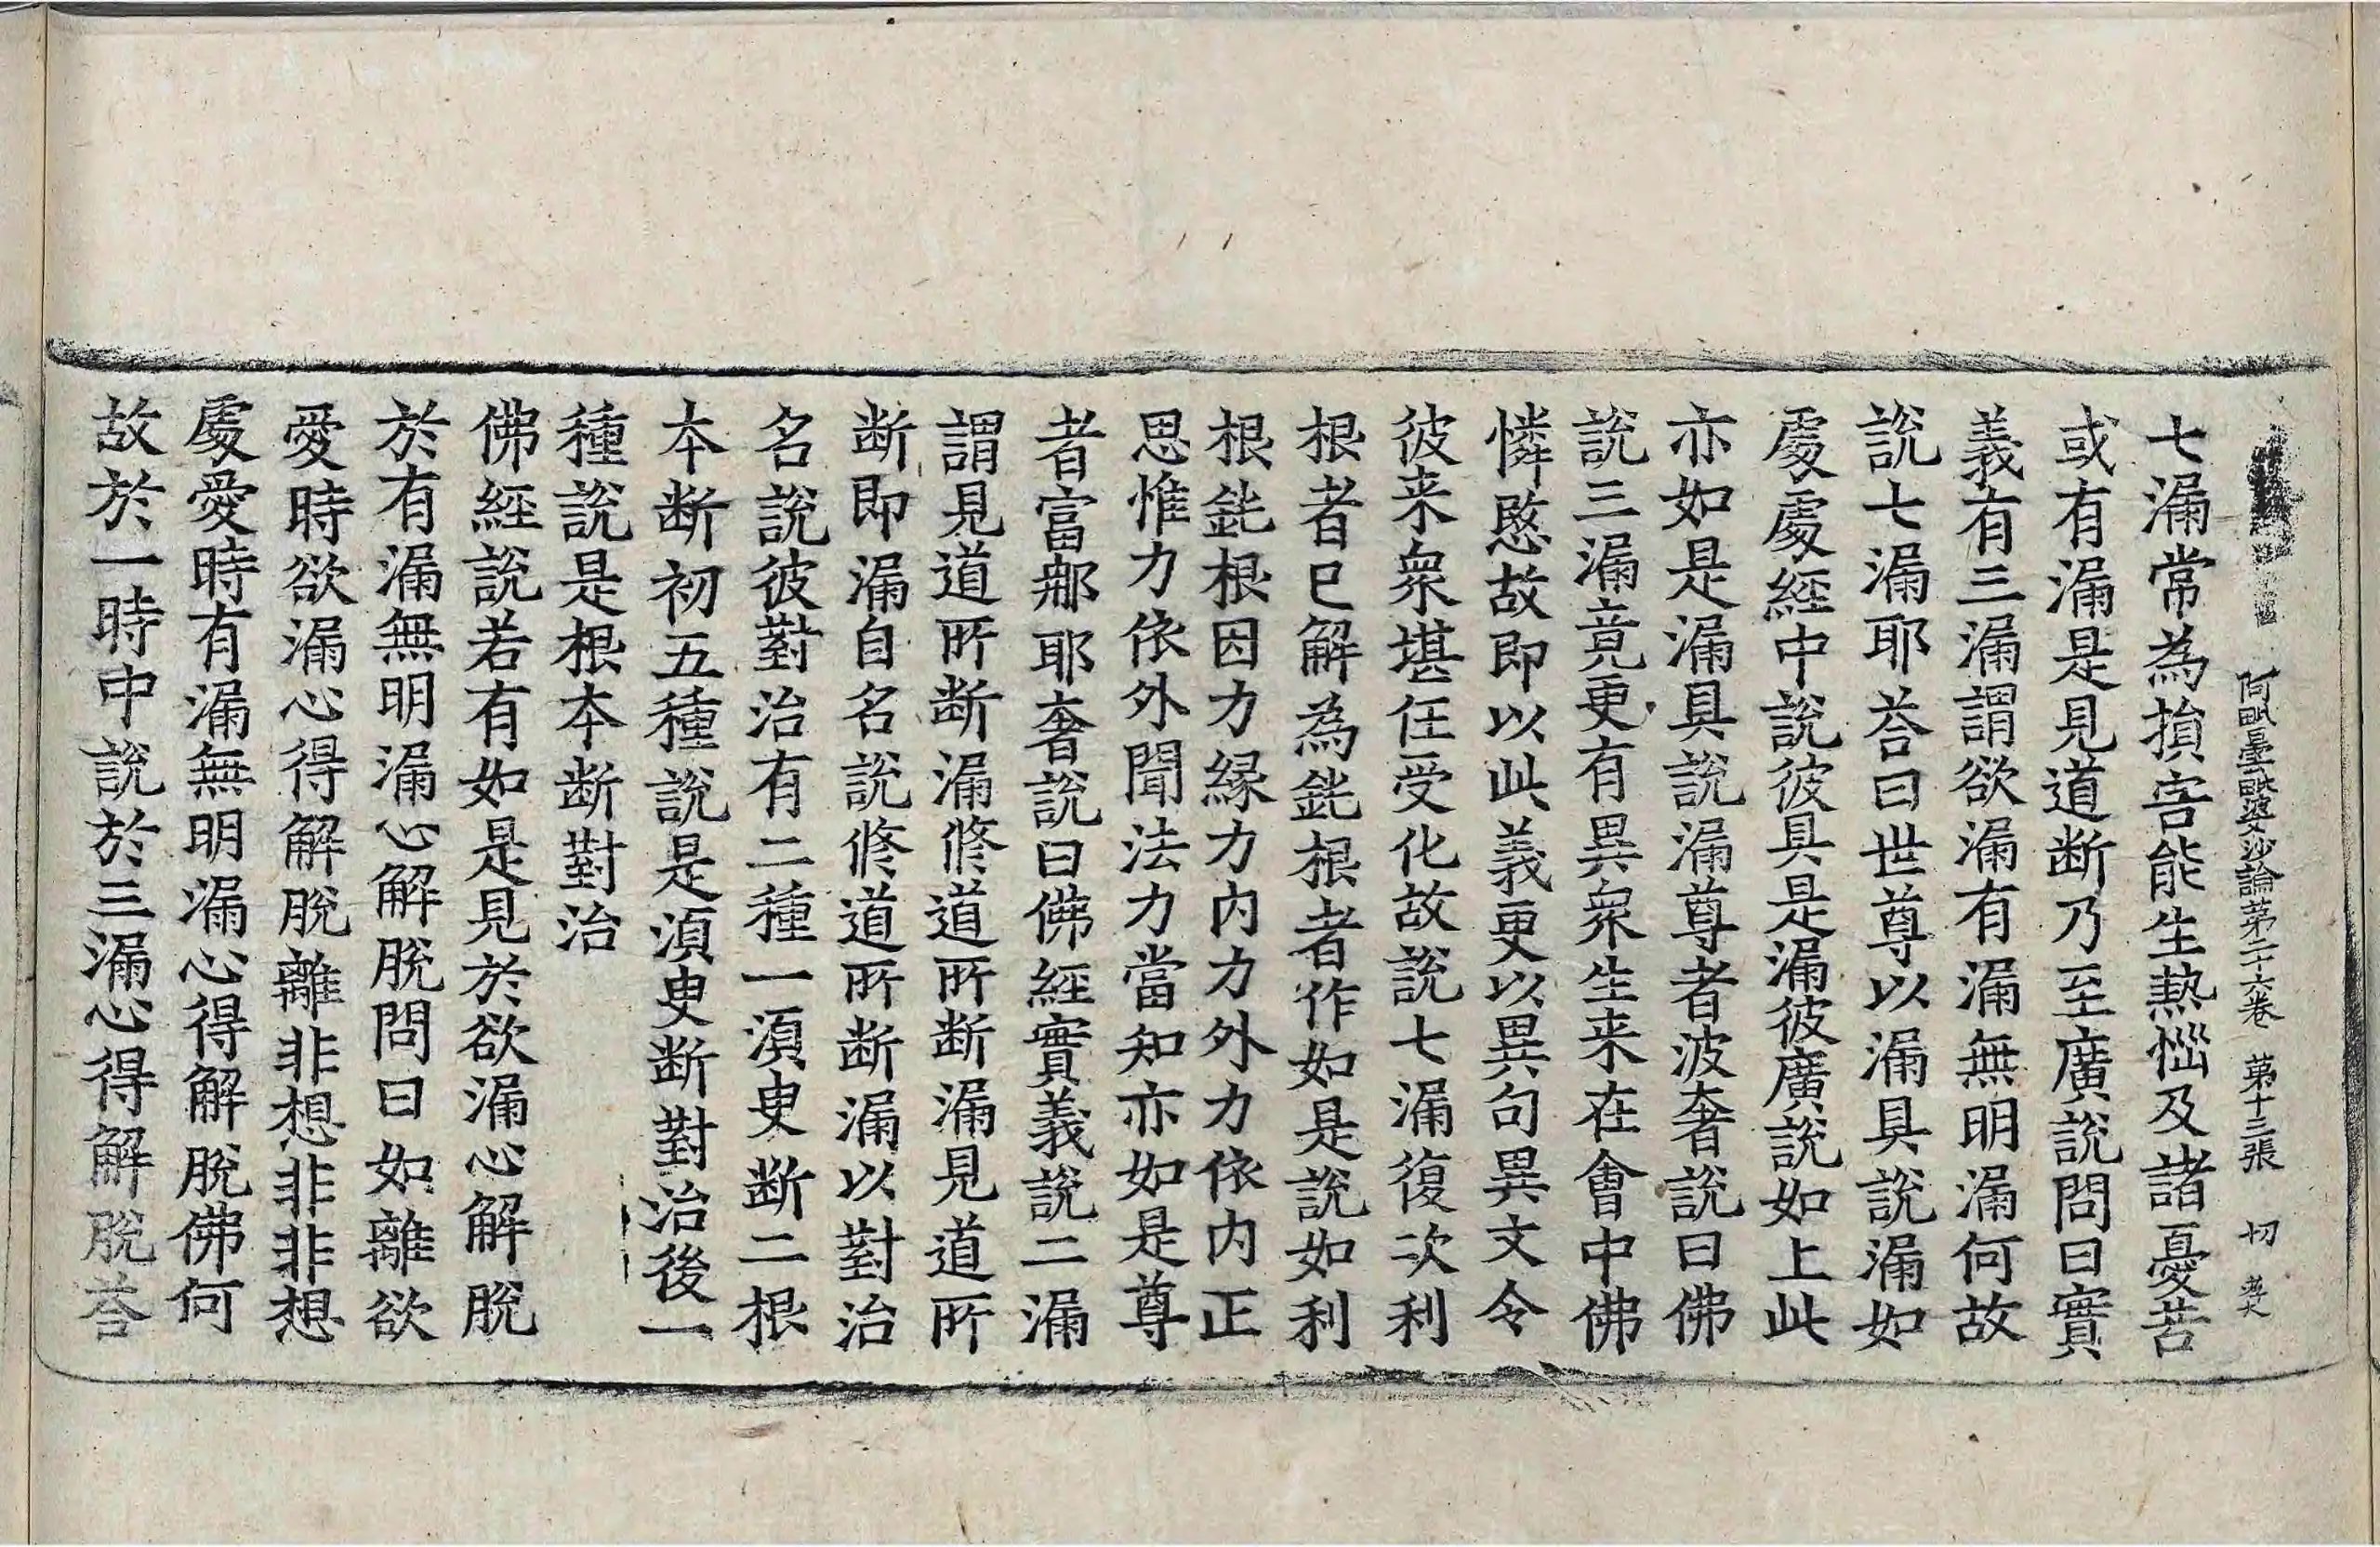 阿毗曇毗婆沙論第二十六卷 第十三張 切
七漏常為損害能生熱惱及諸憂苦
或有漏是見道断乃至廣說問曰實
義有三漏謂欲漏有漏無明漏何故
說七漏耶荅曰世尊以漏具說漏如
處處經中說彼具是漏彼廣說如上此
亦如是漏具說漏尊者波奢說曰佛
說三漏竟更有異衆生来在會中佛
憐愍故即以此義更以異句異文令
彼来衆堪任受化故說七漏復次利
根者已解為鈍根者作如是說如利
根鈍根因力緣力內力外力依內正
思惟力依外聞法力當知亦如是尊
者富那耶奢說曰佛經實義說二漏
謂見道所断漏修道所断漏見道所
断即漏自名說修道所断漏以對治
名說彼對治有二種一湏臾断二根
本断初五種說是湏臾断對治後一
種說是根本断對治
佛經說若有如是見於欲漏心解脫
於有漏無明漏心解脫問曰如離欲
愛時欲漏心得解脫離非想非非想
處愛時有漏無明漏心得解脫佛何
故於一時中說於三漏心得解脫荅